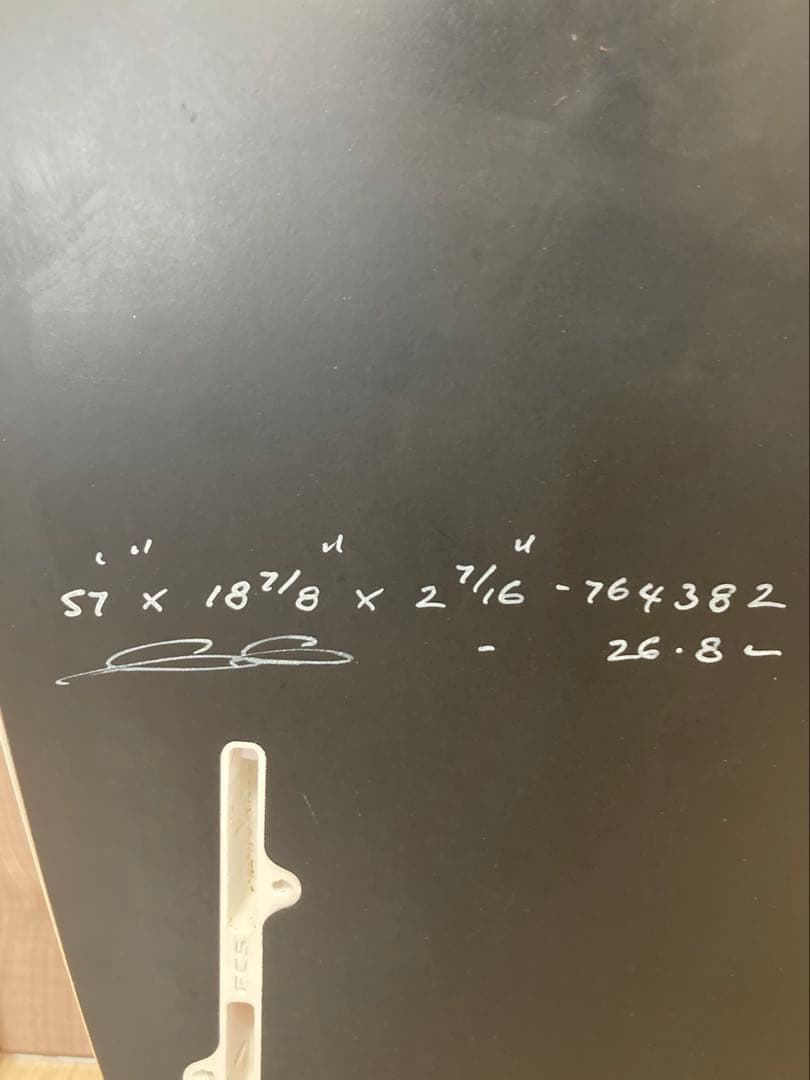 5'7" x 18 7/8" x 2 7/16" - 764382
- 26.8 L
FCS